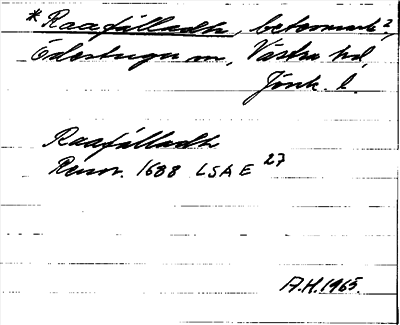 *Raafálladh, betesmark?,
Ödestugu sn, Västra hd,
Jönk. l.
Raafálladh
Renov. 1688 LSA E 27
A.H. 1965.